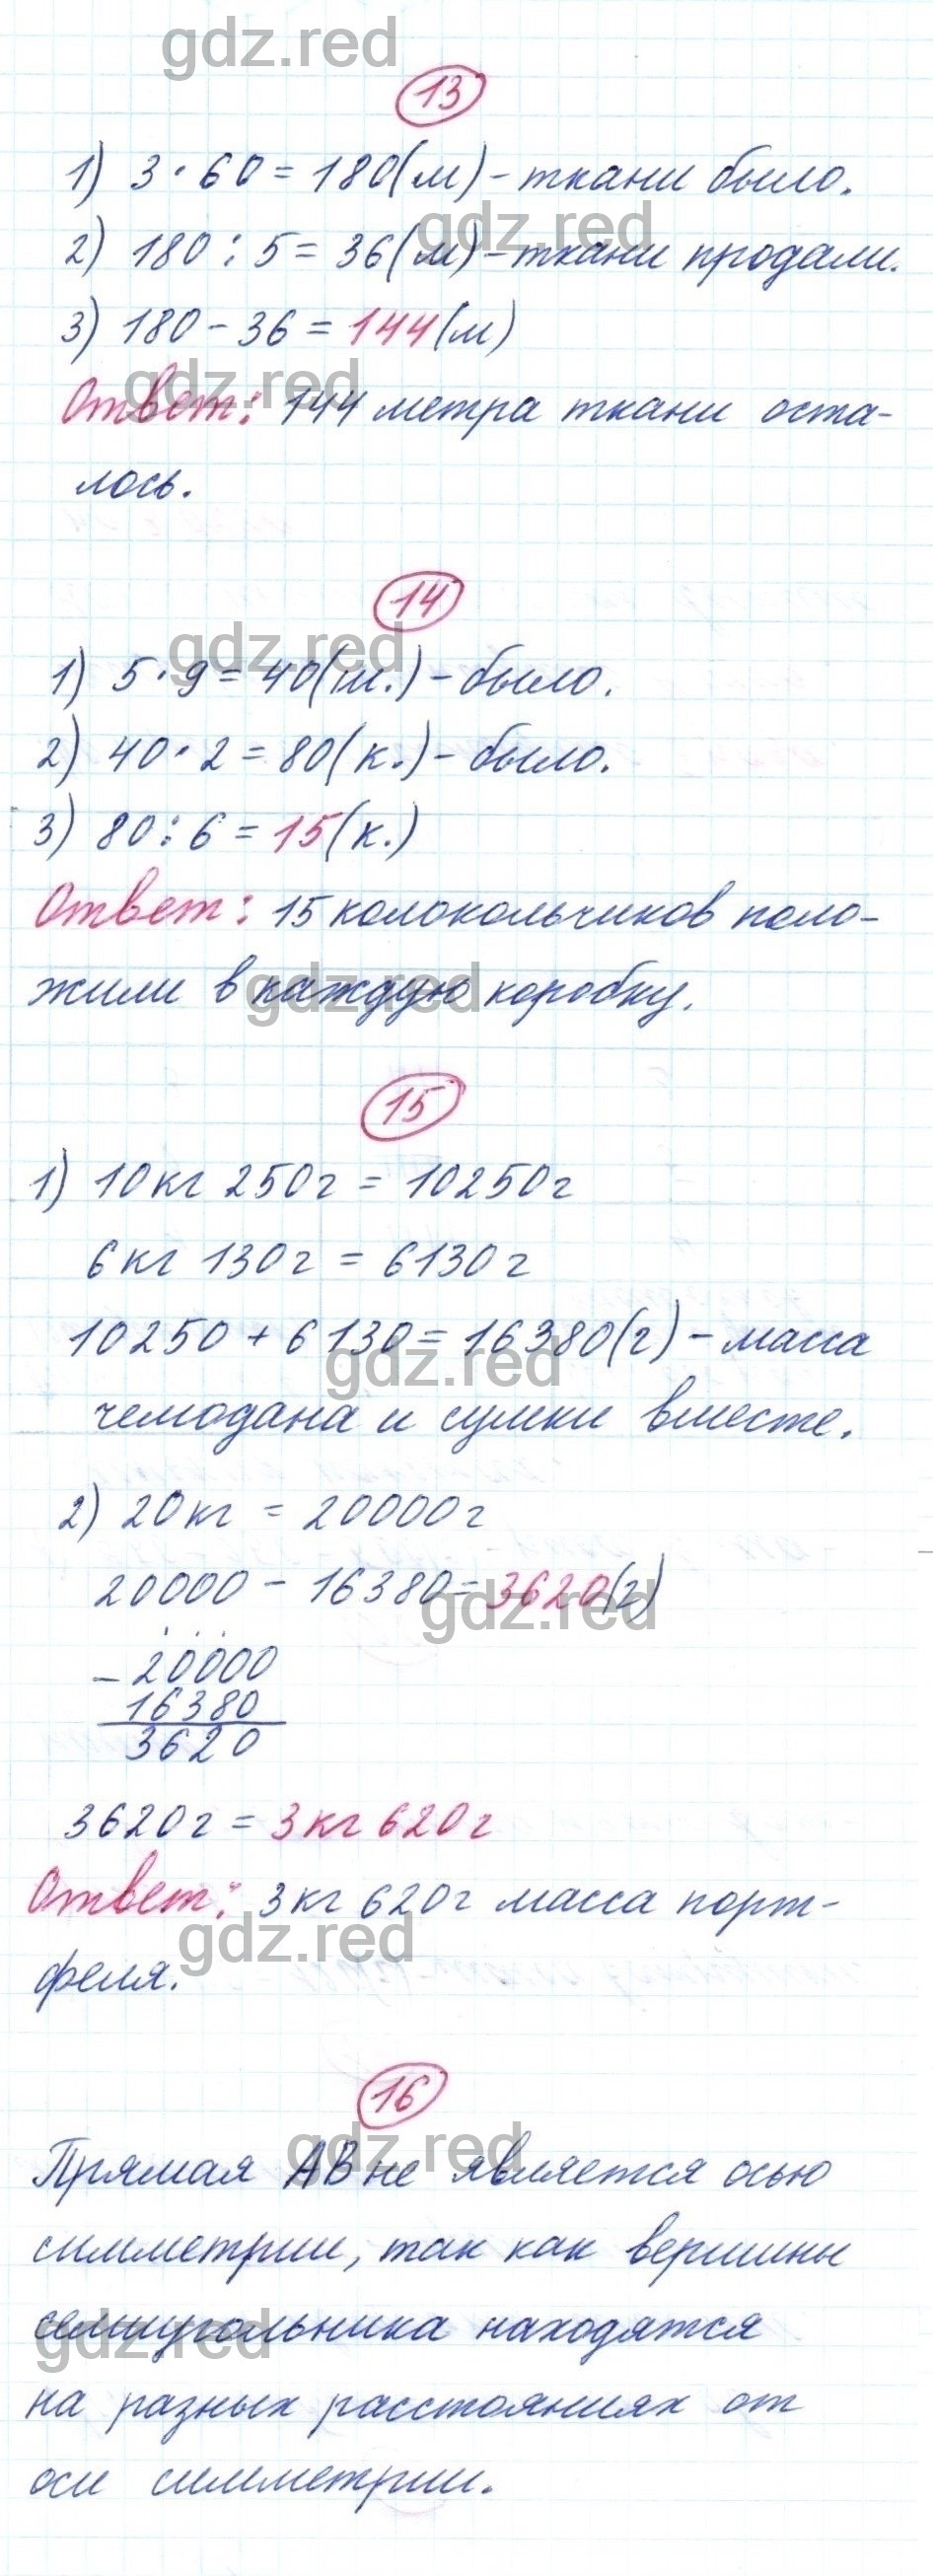 gdz.red
13
1) 3 · 60 = 180 (м) - ткани было.
gdz.red
2) 180 : 5 = 36 (м) - ткани продали.
3) 180 - 36 = 144 (м)
gdz.red
Ответ: 144 метра ткани оста-
лось.
14
gdz.red
1) 5 · 9 = 40 (ш.) - было.
2) 40 · 2 = 80 (к.) - было.
3) 80 : 6 = 15 (к.)
Ответ: 15 колокольчиков поло-
жили в каждую коробку.
gdz.red
15
1) 10 кг 250 г = 10250 г
6 кг 130 г = 6130 г
10250 + 6130 = 16380 (г) - масса
gdz.red
чемодана и сумки вместе.
2) 20 кг = 20000 г
20000 - 16380 = 3620 (г)
gdz.red
- 20000
16380
3620
3620 г = 3 кг 620 г
Ответ: 3 кг 620 г масса порт-
gdz.red
феля.
16
gdz.red
Прямая АВ не является осью
симметрии, так как вершины
семиугольника находятся
gdz.red
на разных расстояниях от
оси симметрии.